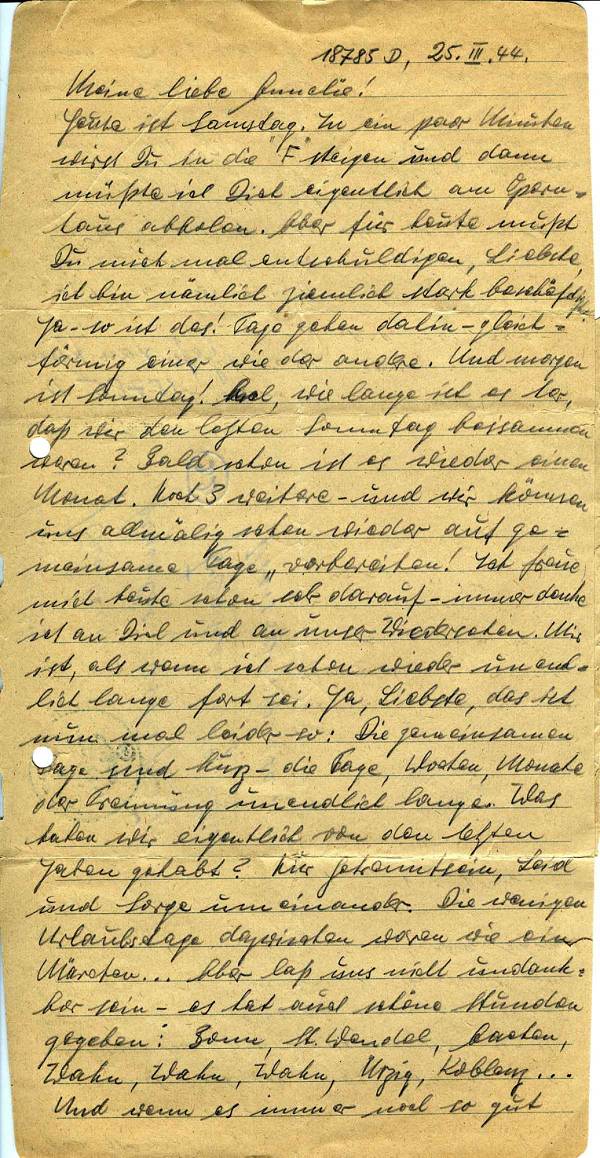 18785 D, 25. III. 44.
Meine liebe Annelie!
Heute ist Samstag. In ein paar Minuten
wirst Du in die "F" steigen und dann
müßte ich Dich eigentlich am Opern=
haus abholen. Aber für heute mußt
Du mich mal entschuldigen, Liebste,
ich bin nämlich ziemlich stark beschäftigt.
Ja - so ist das! Tage gehen dahin - gleich=
förmig einer wie der andere. Und morgen
ist Sonntag! Ach, wie lange ist es her,
daß wir den letzten Sonntag beisammen
waren? Bald schon ist es wieder einen
Monat. Noch 3 weitere - und wir können
uns allmälig schon wieder auf ge=
meinsame Tage "vorbereiten! Ich freue
mich heute schon sehr darauf - immer denke
ich an Dich und an unser Wiedersehen. Mir
ist, als wenn ich schon wieder unend=
lich lange fort sei. Ja, Liebste, das ist
nun mal leider so: Die gemeinsamen
Tage sind kurz - die Tage, Wochen, Monate
der Trennung unendlich lange. Was
haben wir eigentlich von den letzten
Jahren gehabt? Nur Getrenntsein, Leid
und Sorge um einander. Die wenigen
Urlaubstage dazwischen waren wie ein
Märchen... Aber laß uns nicht undank=
bar sein - es hat auch schöne Stunden
gegeben: Bonn, St. Wendel, Aachen,
Wahn, Wahn, Wahn, Ürzig, Koblenz...
Und wenn es immer noch so gut